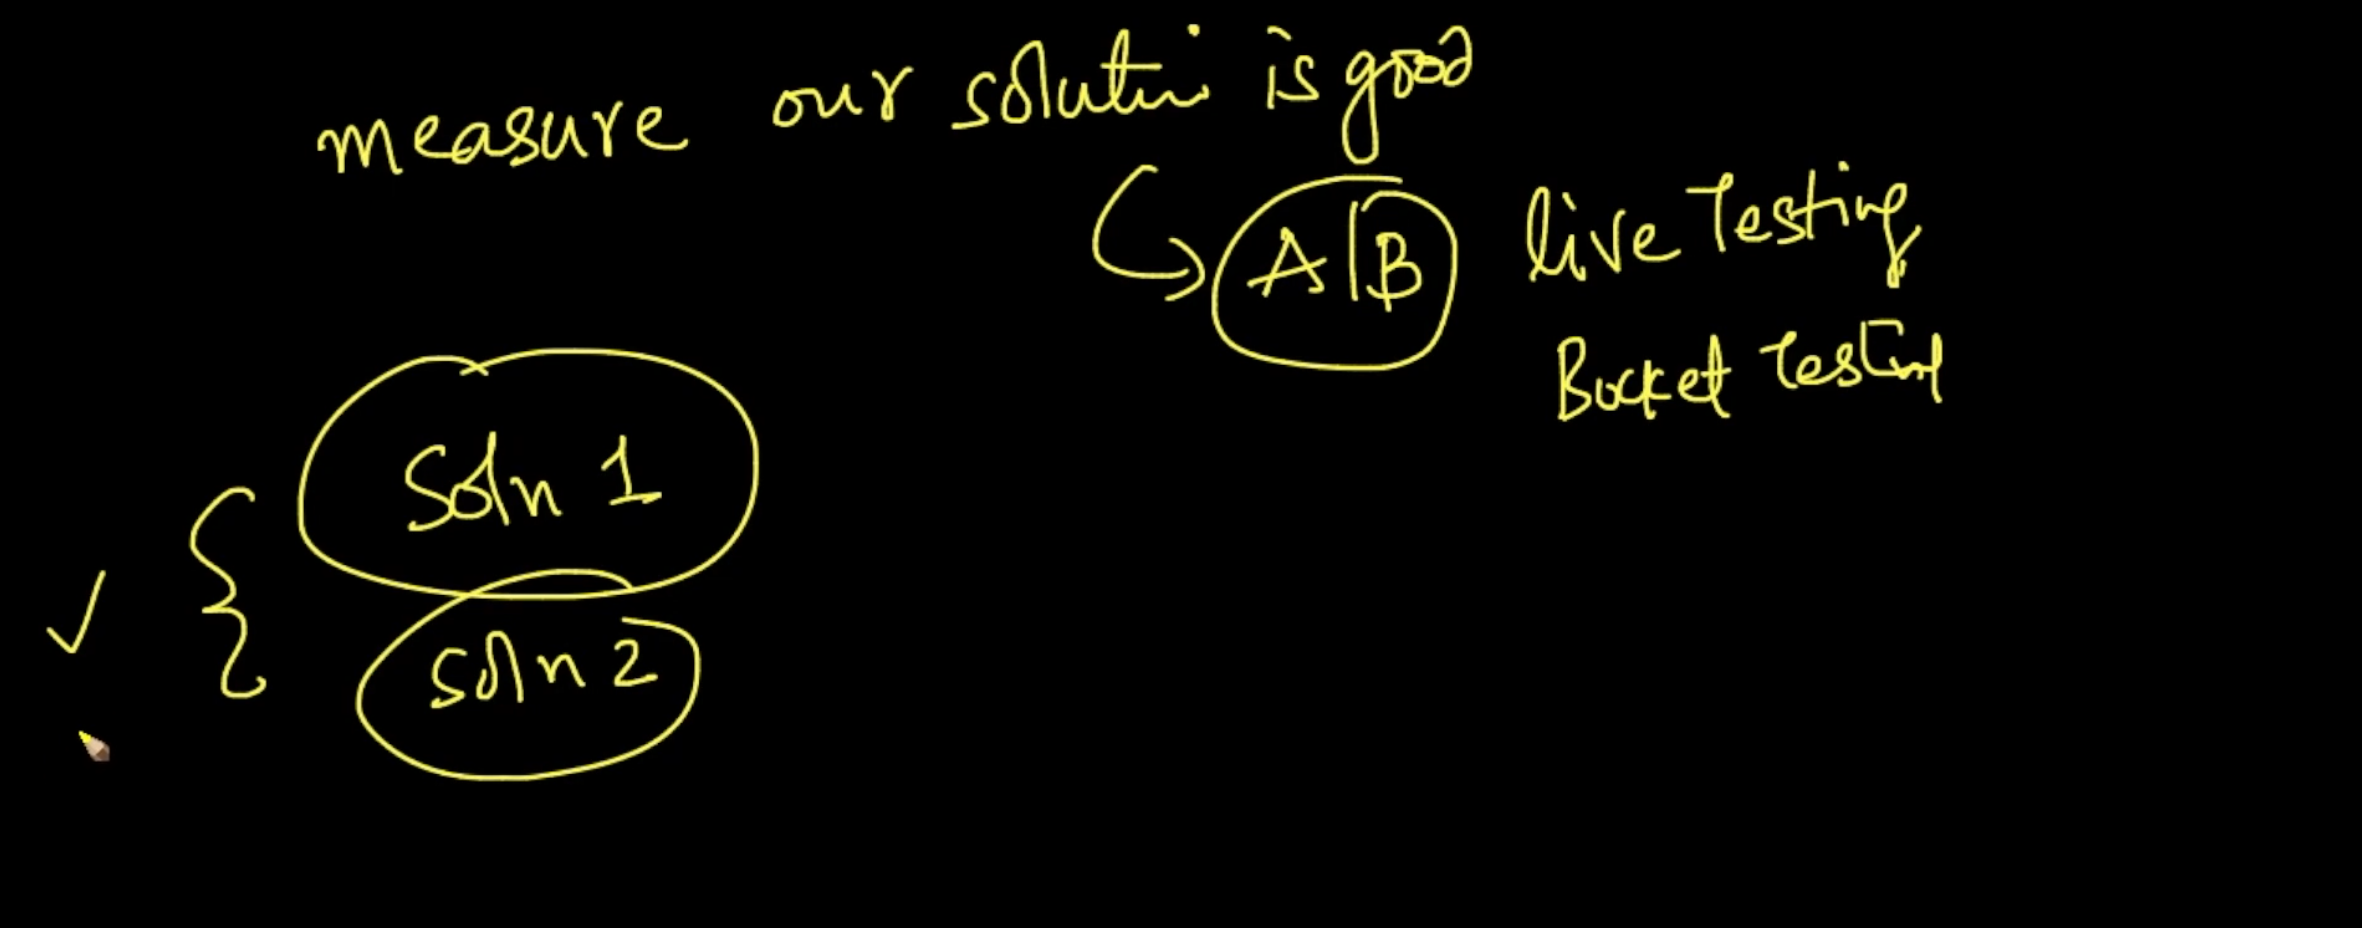 measure our solutin is good
A|B live Testing
Bucket Testing
Soln 1
soln 2